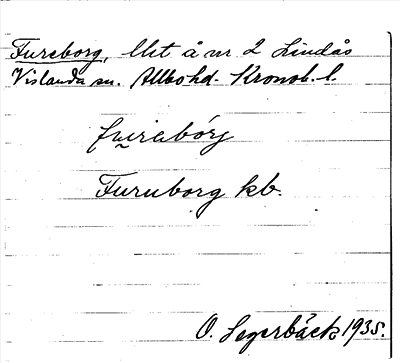 Fureborg, lht å nr 2 Lindås
Vislanda sn. Allbo hd. Kronob. l.
fu̯rebórj
Furuborg kb.
O. Segerbäck 1935.